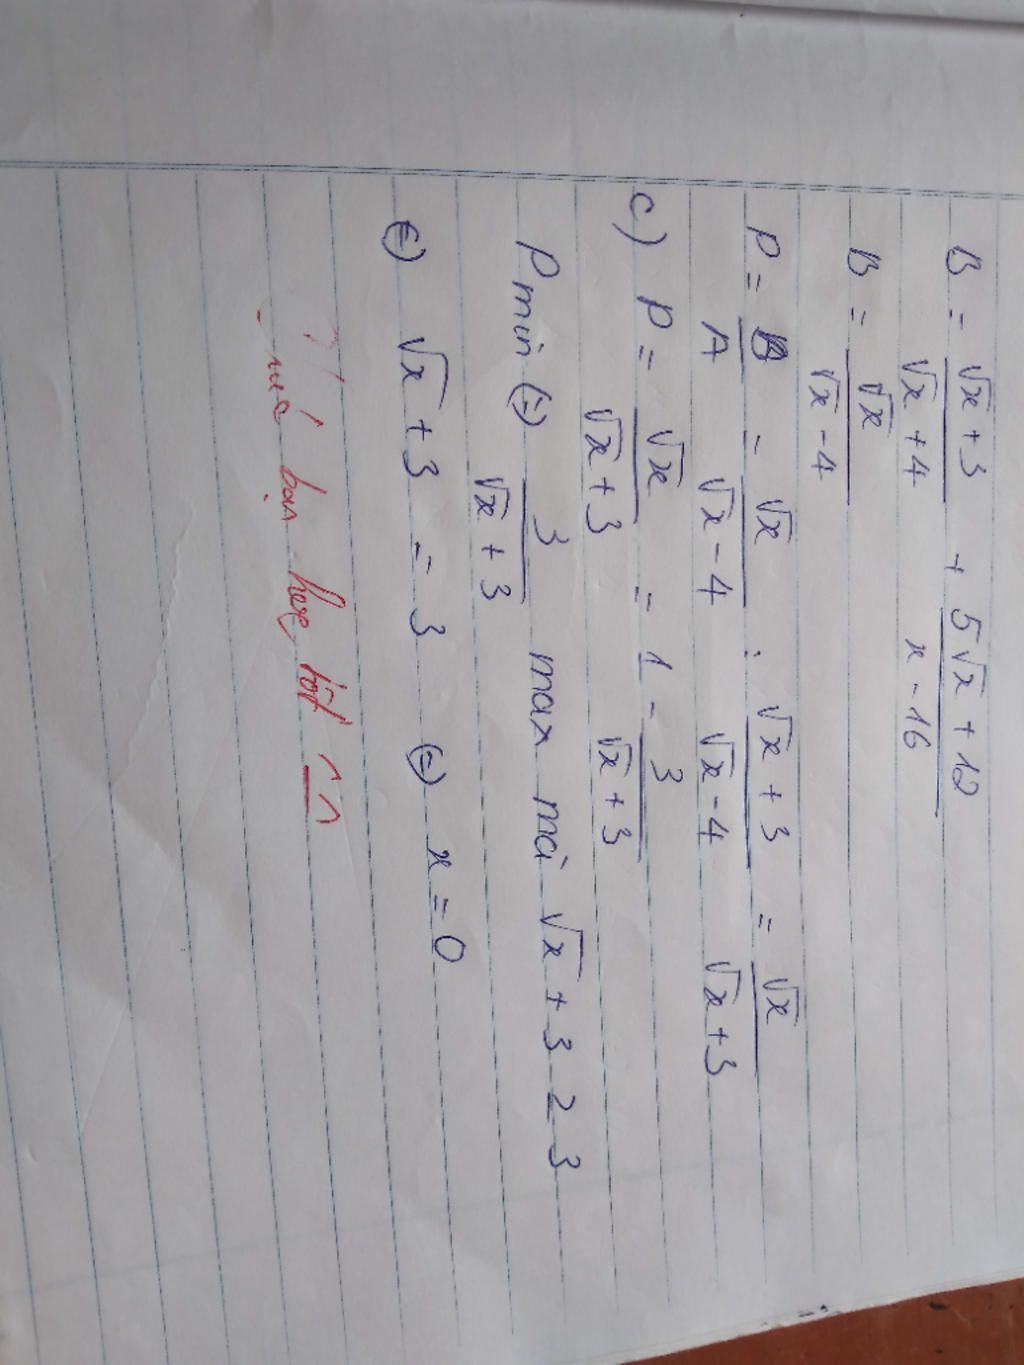 B = (√x + 3)/(√x + 4) + (5√x + 12)/(x - 16)
B = √x/(√x - 4)
P = B/A = √x/(√x - 4) : (√x + 3)/(√x - 4) = √x/(√x + 3)
c) P = √x/(√x + 3) = 1 - 3/(√x + 3)
Pmin (=) 3/(√x + 3) max mà √x + 3 ≥ 3
(=) √x + 3 = 3 (=) x = 0
bạn học tốt ^_^